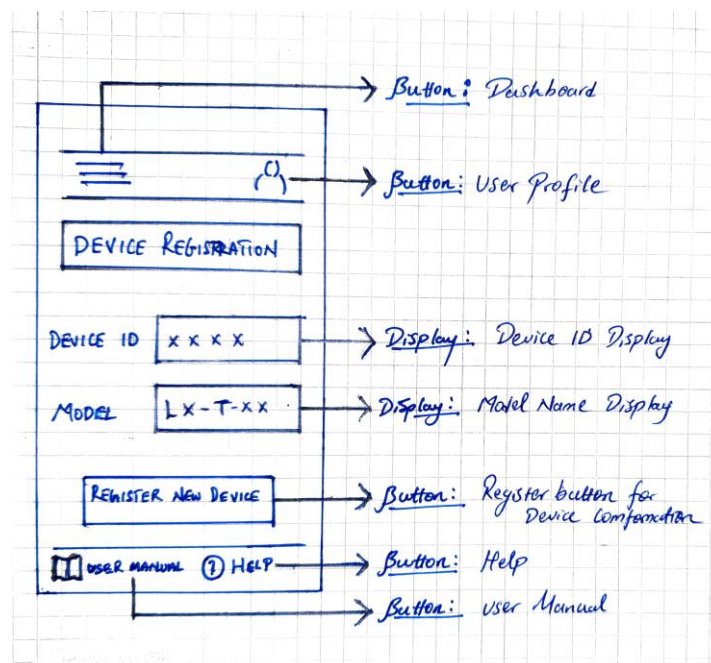 Button: Dashboard
Button: User Profile
DEVICE REGISTRATION
DEVICE ID x x x x
Display: Device ID Display
MODEL Lx-T-xx
Display: Model Name Display
REGISTER NEW DEVICE
Button: Register button for
Device Comfomation
USER MANUAL ? HELP
Button: Help
Button: User Manual